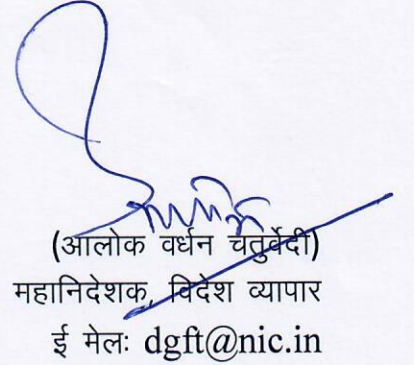 (आलोक वर्धन चतुर्वेदी)
महानिदेशक, विदेश व्यापार
ई मेलः dgft@nic.in